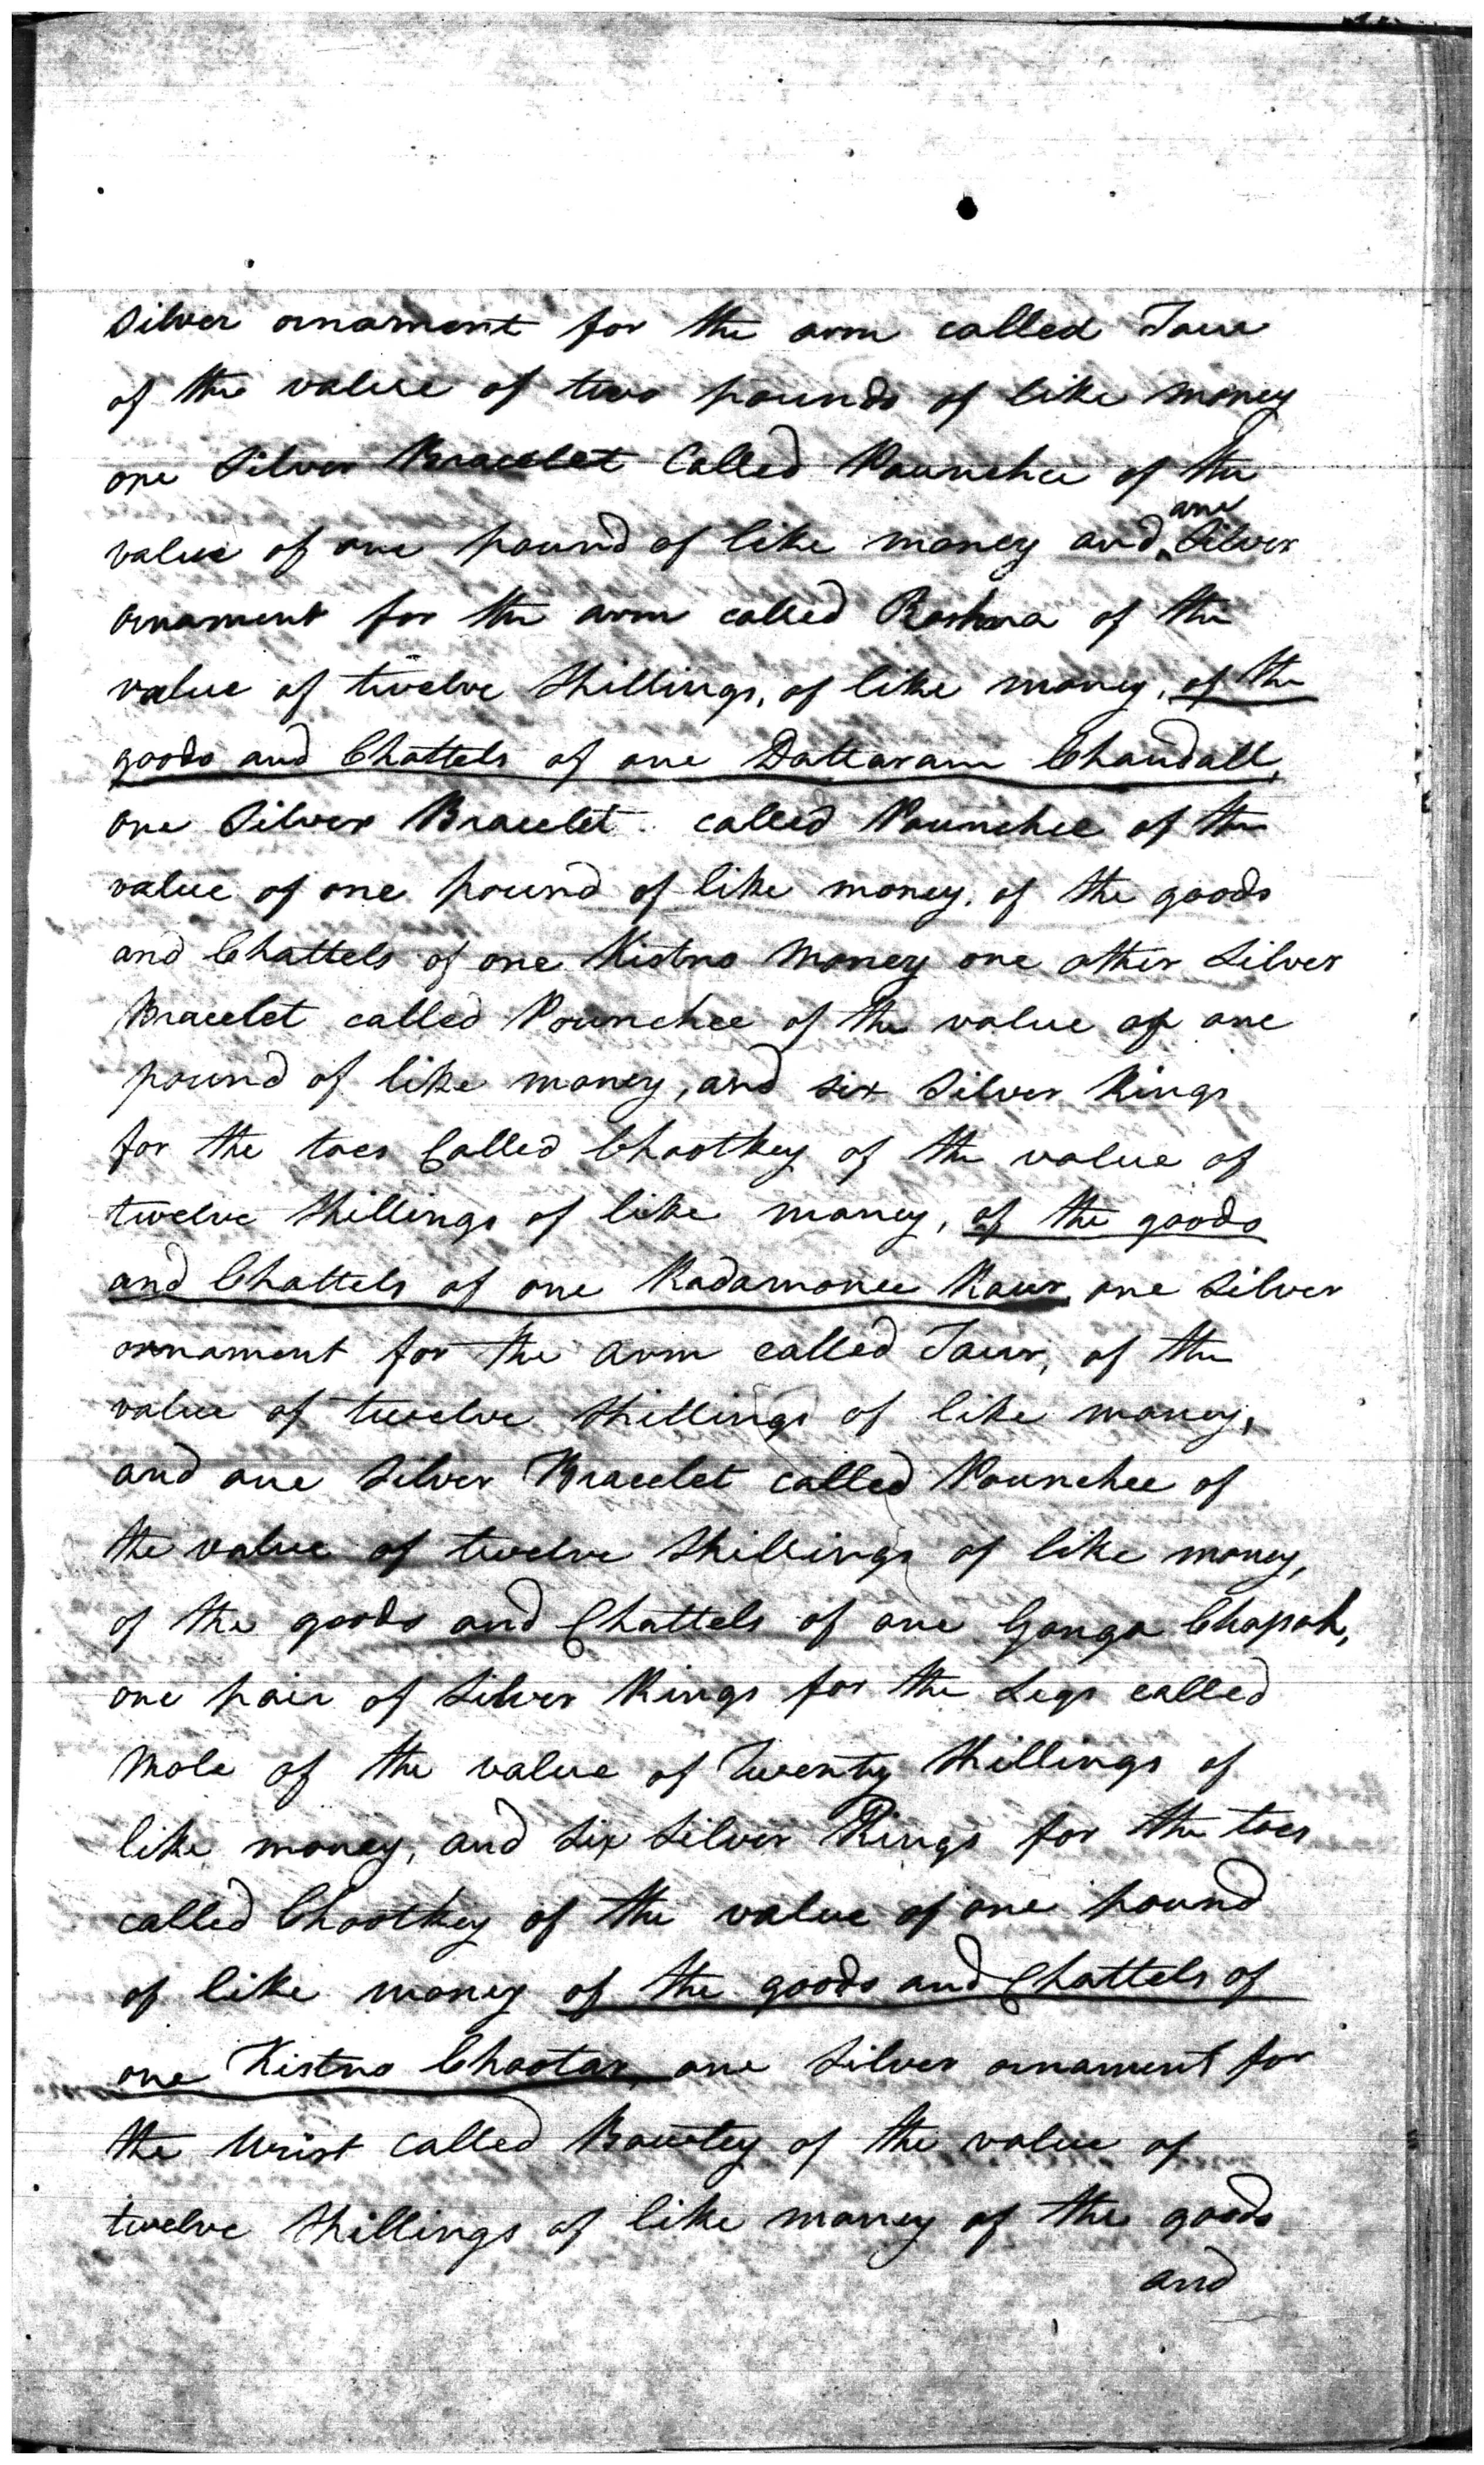 Silver ornament for the arm called Taur
of the value of two pounds of like money
one Silver Bracelet Called Pounchee of the
value of one pound of like money and one Silver
ornament for the arm called of the
value of twelve Shillings, of like money, of the
goods and Chattels of one Dattaram Chandall,
one Silver Bracelet called Pounchee of the
value of one pound of like money, of the goods
and Chattels of one Kistno Money one other Silver
Bracelet called Pounchee of the value of one
pound of like money, and six Silver Rings
for the toes Called Chootkey of the value of
twelve Shillings of like money, of the goods
and Chattels of one Radamonee Raur, one Silver
ornament for the arm called Taur, of the
value of twelve Shillings of like money,
and one Silver Bracelet called Pounchee of
the value of twelve Shillings of like money,
of the goods and Chattels of one Gonga Chapah,
one pair of Silver Rings for the Legs called
Mole of the value of Twenty Shillings of
like money, and six Silver Rings for the toes
called Chootkey of the value of one pound
of like money of the goods and Chattels of
one Kistno Chootar, one Silver ornament for
the Wrist called Bowtey of the value of
twelve Shillings of like money of the goods
and